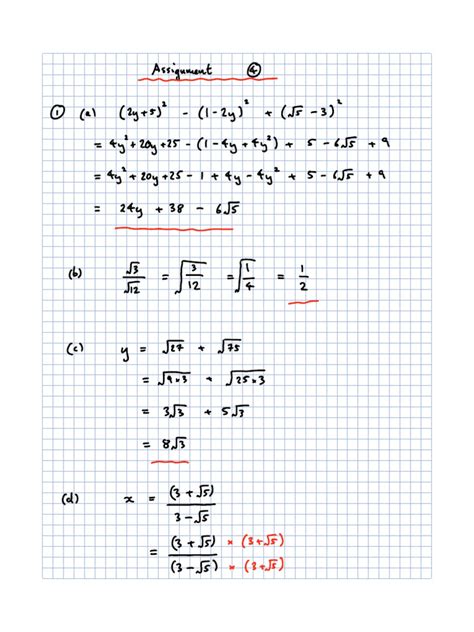 Assignment ④
① (a) (2y+5)² - (1-2y)² + (√5 - 3)²
= 4y² + 20y + 25 - (1 - 4y + 4y²) + 5 - 6√5 + 9
= 4y² + 20y + 25 - 1 + 4y - 4y² + 5 - 6√5 + 9
= 24y + 38 - 6√5
(b) √3/√12 = √(3/12) = √(1/4) = 1/2
(c) y = √27 + √75
= √(9×3) + √(25×3)
= 3√3 + 5√3
= 8√3
(d) x = (3 + √5)/(3 - √5)
= (3 + √5)/(3 - √5) × (3+√5)/× (3+√5)